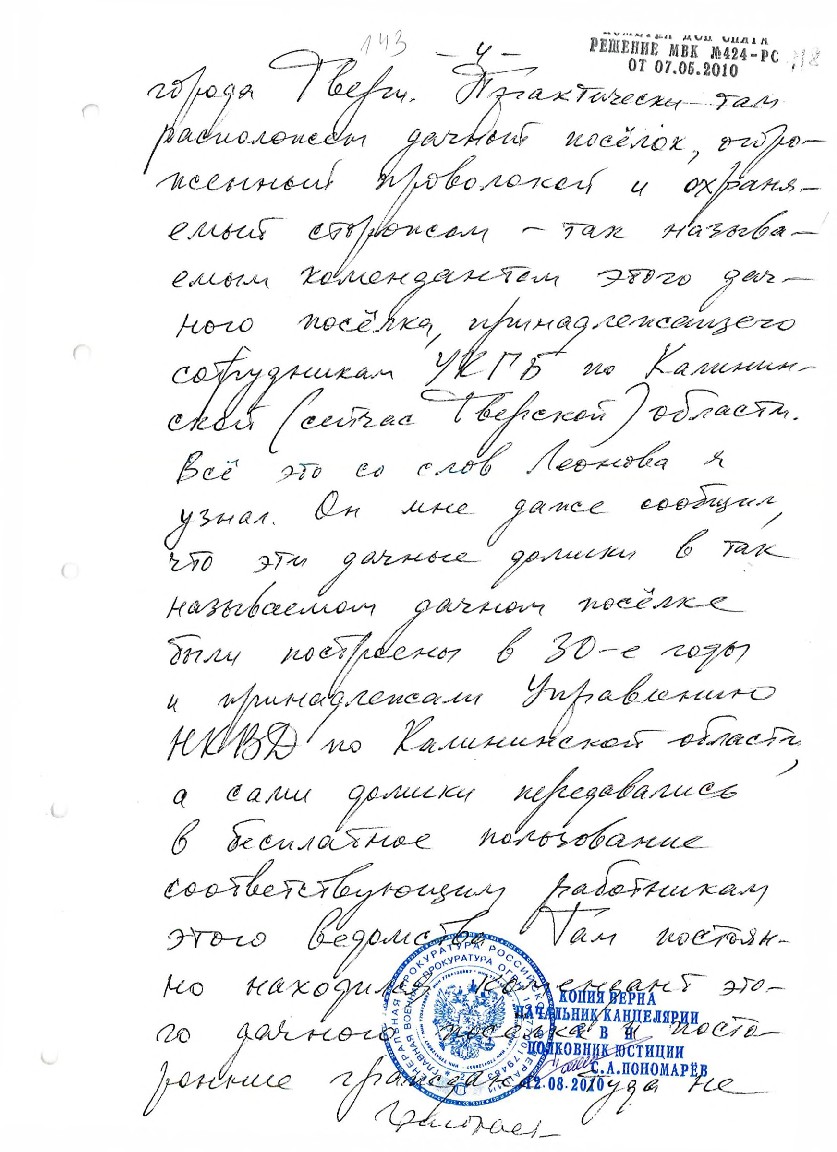 143
-4-
РЕШЕНИЕ МВК №424-РС
ОТ 07.05.2010
города Твери. Практически там
расположен дачный посёлок, огоро-
женный проволокой и охраня-
емый сторожем – так называ-
емым комендантом этого дач-
ного посёлка, принадлежащего
сотрудникам УКГБ по Калинин-
ской (сейчас Тверской) области.
Всё это со слов Леонова я
узнал. Он мне даже сообщил,
что эти дачные домики в так
называемом дачном посёлке
были построены в 30-е годы
и принадлежали Управлению
НКВД по Калининской области,
а сами домики передавались
в бесплатное пользование
соответствующим работникам
этого ведомства. Там постоян-
но находился комендант это-
го дачного посёлка и посто-
ронние граждане туда не
КОПИЯ ВЕРНА
НАЧАЛЬНИК КАНЦЕЛЯРИИ
К В Н
ПОЛКОВНИК ЮСТИЦИИ
С.А.ПОНОМАРЁВ
12.08.2010